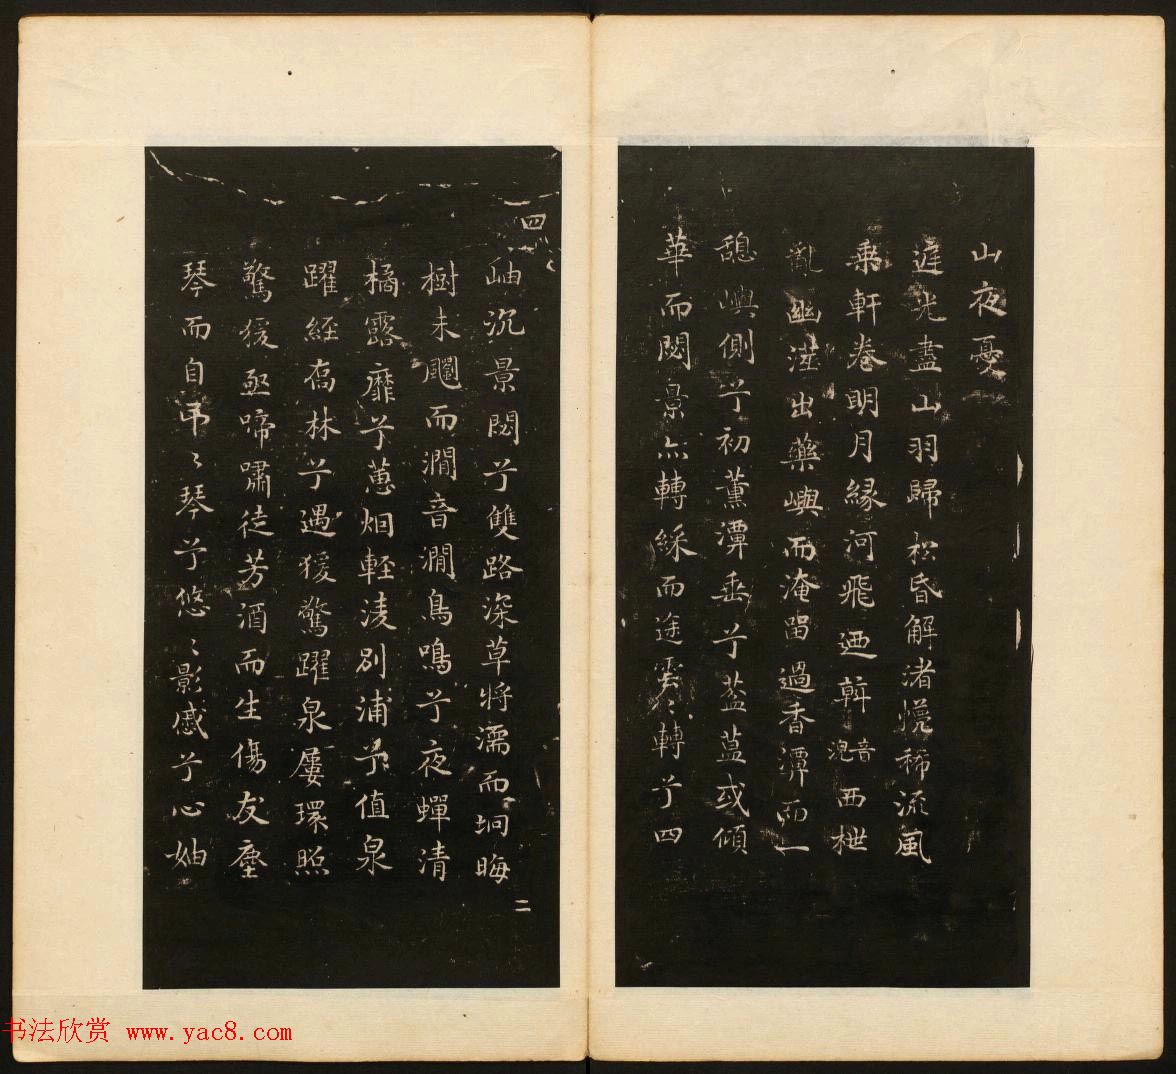 山夜憂
遥光盡山羽歸松昏解渚愰稀流風
乘軒卷明月緣河飛迺斡音浣西枻
亂幽澨出藥嶼而淹留過香潭而一
憩嶼側兮初薰潭垂兮葢蒀或傾
華而閟景亦轉綵而途雲〻轉兮四
岫沉景閟兮雙路深草將濡而坰晦
樹未䬙而澗音澗鳥鳴兮夜蟬清
橘露靡兮蕙烟輕淩別浦兮值泉
躍經喬林兮遇猨驚躍泉屢環照
驚猨亟啼嘯徒芳酒而生傷友塵
琴而自弔〻琴兮悠〻影慼兮心妯
四
二
书法欣赏 www.yac8.com